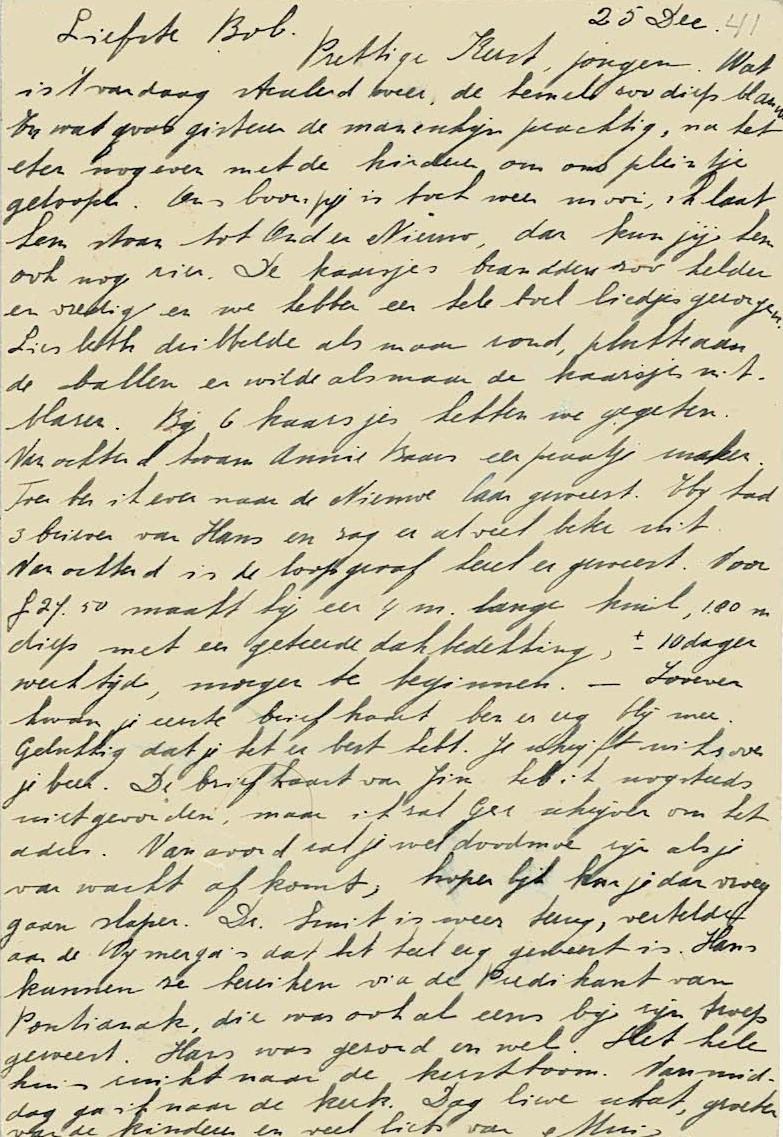 25 Dec. 41
Liefste Bob.
Prettige Kerst, jongen. Wat
is 't vandaag stralend weer, de hemel zoo diep blauw
En wat was gisteren de maneschijn prachtig, na het
eten nog even met de kinderen om ons pleintje
geloopen. Ons boompje is toch weer mooi, ik laat
hem staan tot Oud en Nieuw, dan kun jij hem
ook nog zien. De kaarsjes brandden zoo helder
en vredig en we hebben een hele boel liedjes gezongen.
Liesbeth dribbelde als maar rond, plukte aan
de ballen en wilde alsmaar de kaarsjes uit-
blazen. Bij 6 kaarsjes hebben we gegeten.
Vanochtend kwam Annie Baars een praatje maken.
Toen ben ik even naar de Nieuwe laan geweest. Iby had
3 brieven van Hans en zag er al veel beter uit.
Vanochtend is de loopgraaf heer er geweest. Voor
f 27.50 maakt hij een 4 m. lange kuil, 1.80 m
diep met een geteerde dakbedekking, ± 10 dagen
werktijd, morgen te beginnen. — Zoeven
kwam je eerste briefkaart ben er erg blij mee.
Gelukkig dat je het er best hebt. Je schrijft niks over
je been. De briefkaart van Jim heb ik nog steeds
niet gevonden, maar ik zal Ger schrijven om het
adres. Vanavond zal je wel doodmoe zijn als je
van wacht af komt, hopelijk kun je dan vroeg
gaan slapen. Dr. Smit is weer terug, vertelde
aan de Wymenga's dat het heel erg geweest is. Hans
kunnen ze bereiken via de Predikant van
Pontianak, die was ook al eens bij zijn troep
geweest. Hans was gezond en wel. Het hele
huis ruikt naar de kerstboom. Vanmid-
dag ga ik naar de kerk. Dag lieve schat, groeten
van de kinderen en veel liefs van Muis